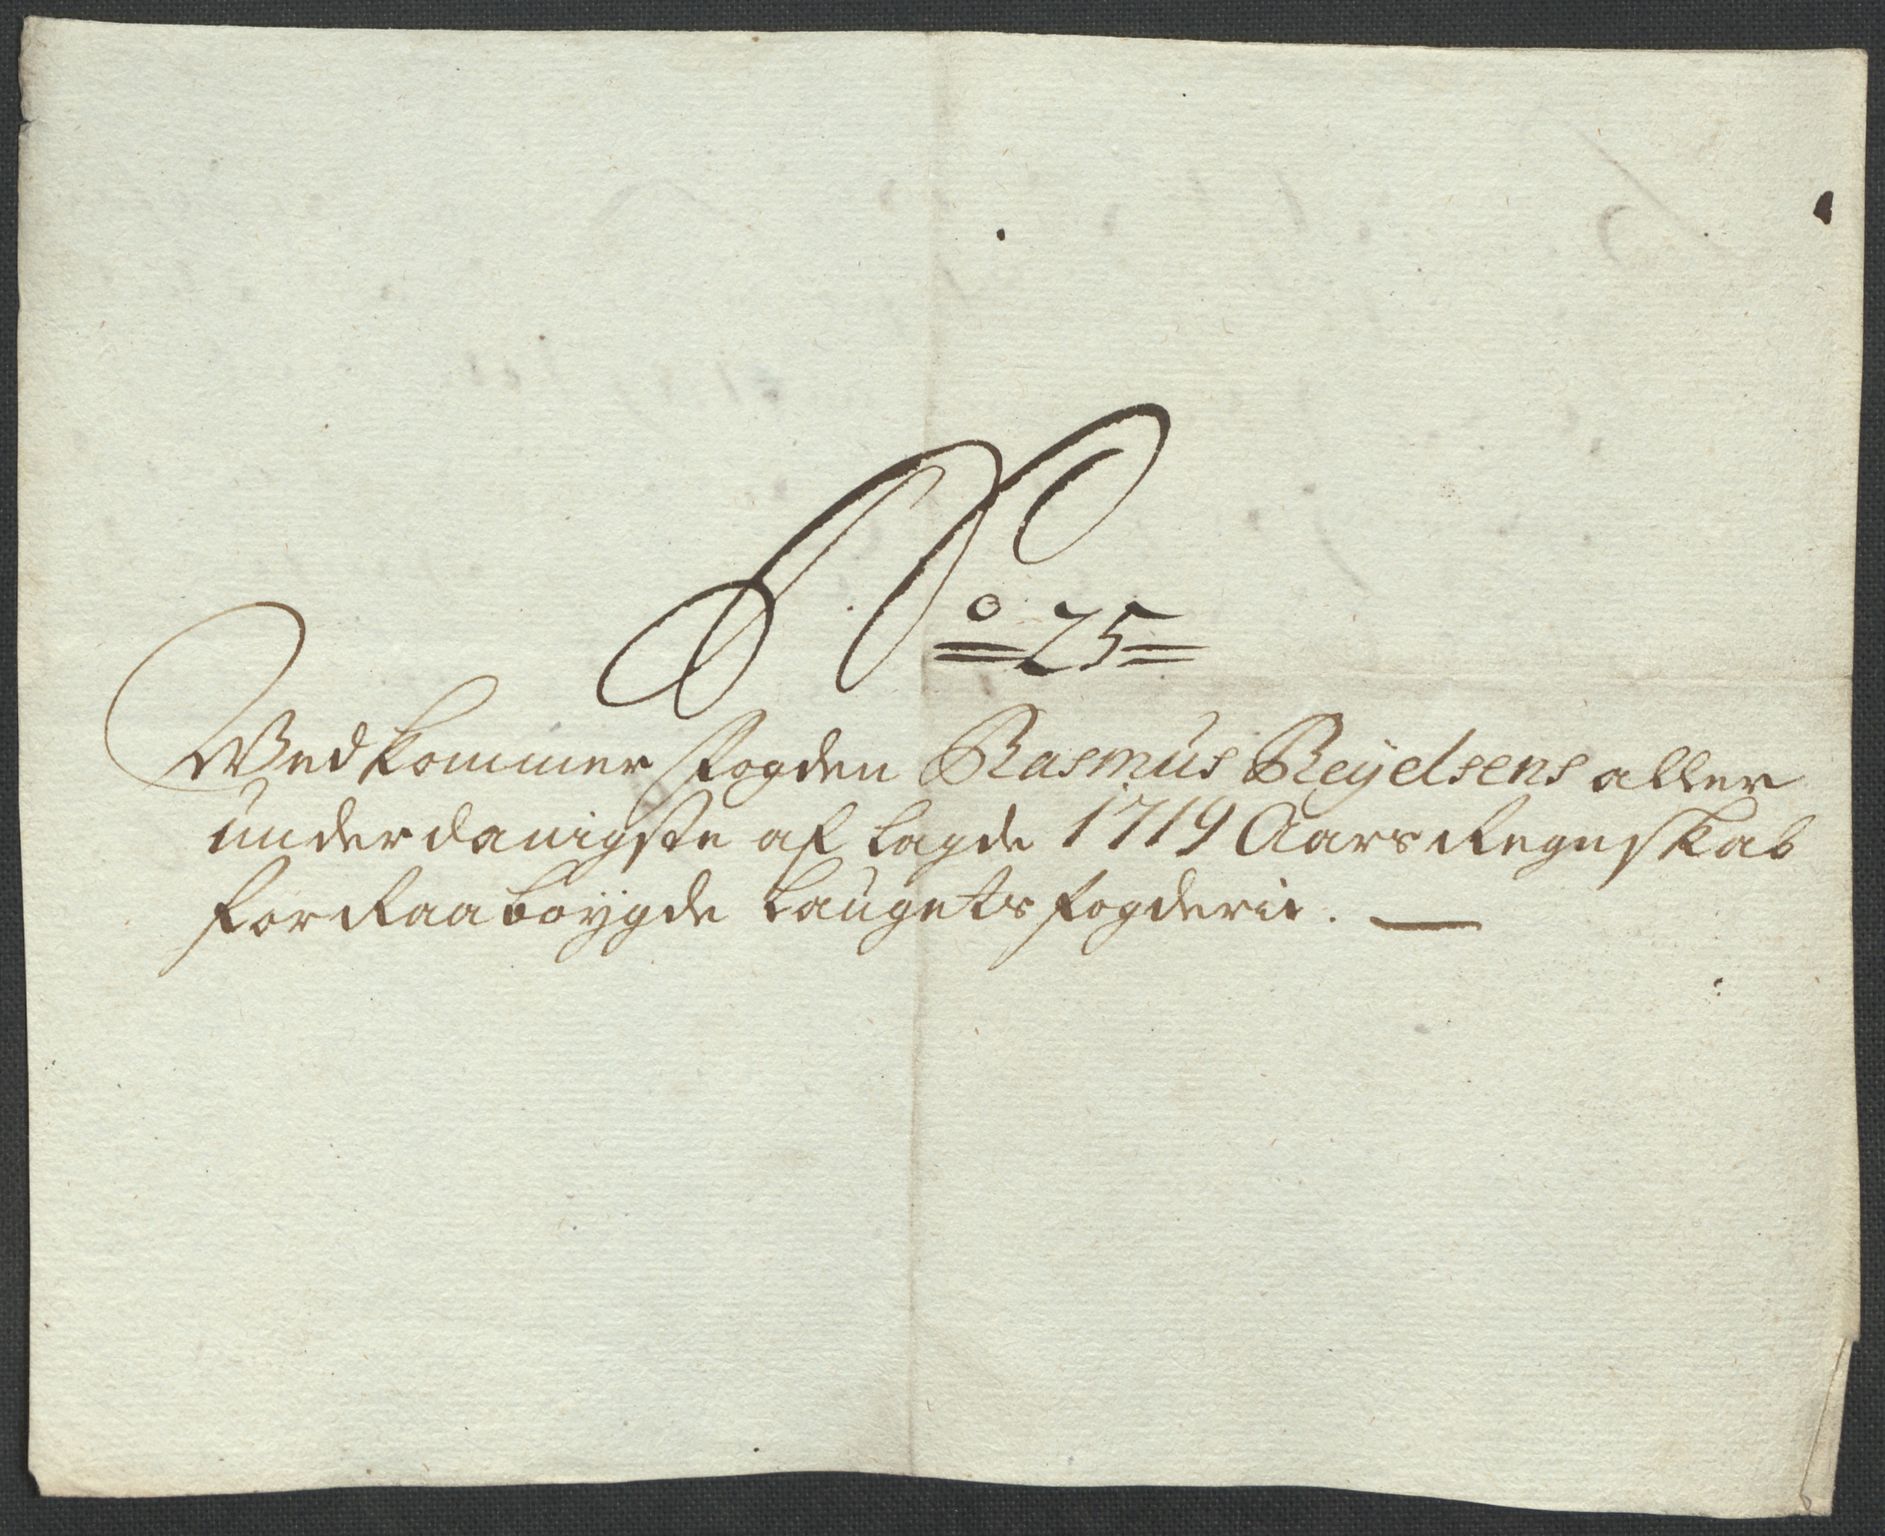 No 25
Vedkommer Fogden Rasmus Reyelsens aller
underdanigste af lagde 1719 Aars Regnskab
for Raabøygde Laugets fogderie.